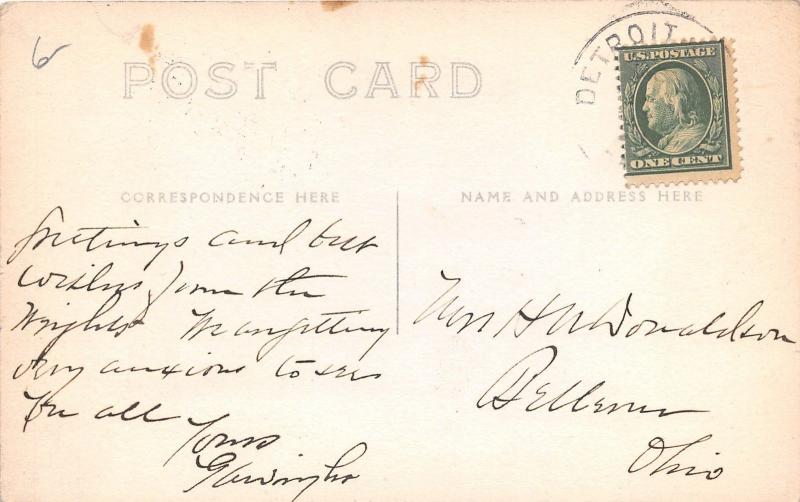 6
POST CARD
DETROIT
U.S. POSTAGE
ONE CENT
CORRESPONDENCE HERE
NAME AND ADDRESS HERE
Greetings and best
wishes from the
Wrights We are getting
very anxious to see
you all
Yours
Mrs H McDonaldson
Bellevue
Ohio